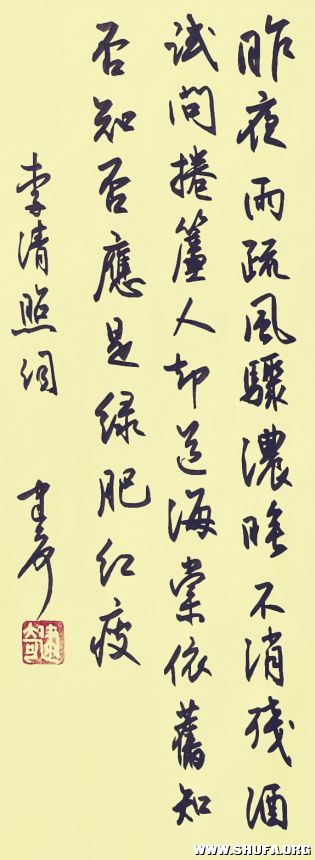 昨夜雨疏風驟濃睡不消殘酒
試問捲簾人却道海棠依舊知
否知否應是綠肥紅瘦
李清照詞
WWW.SHUFA.ORG